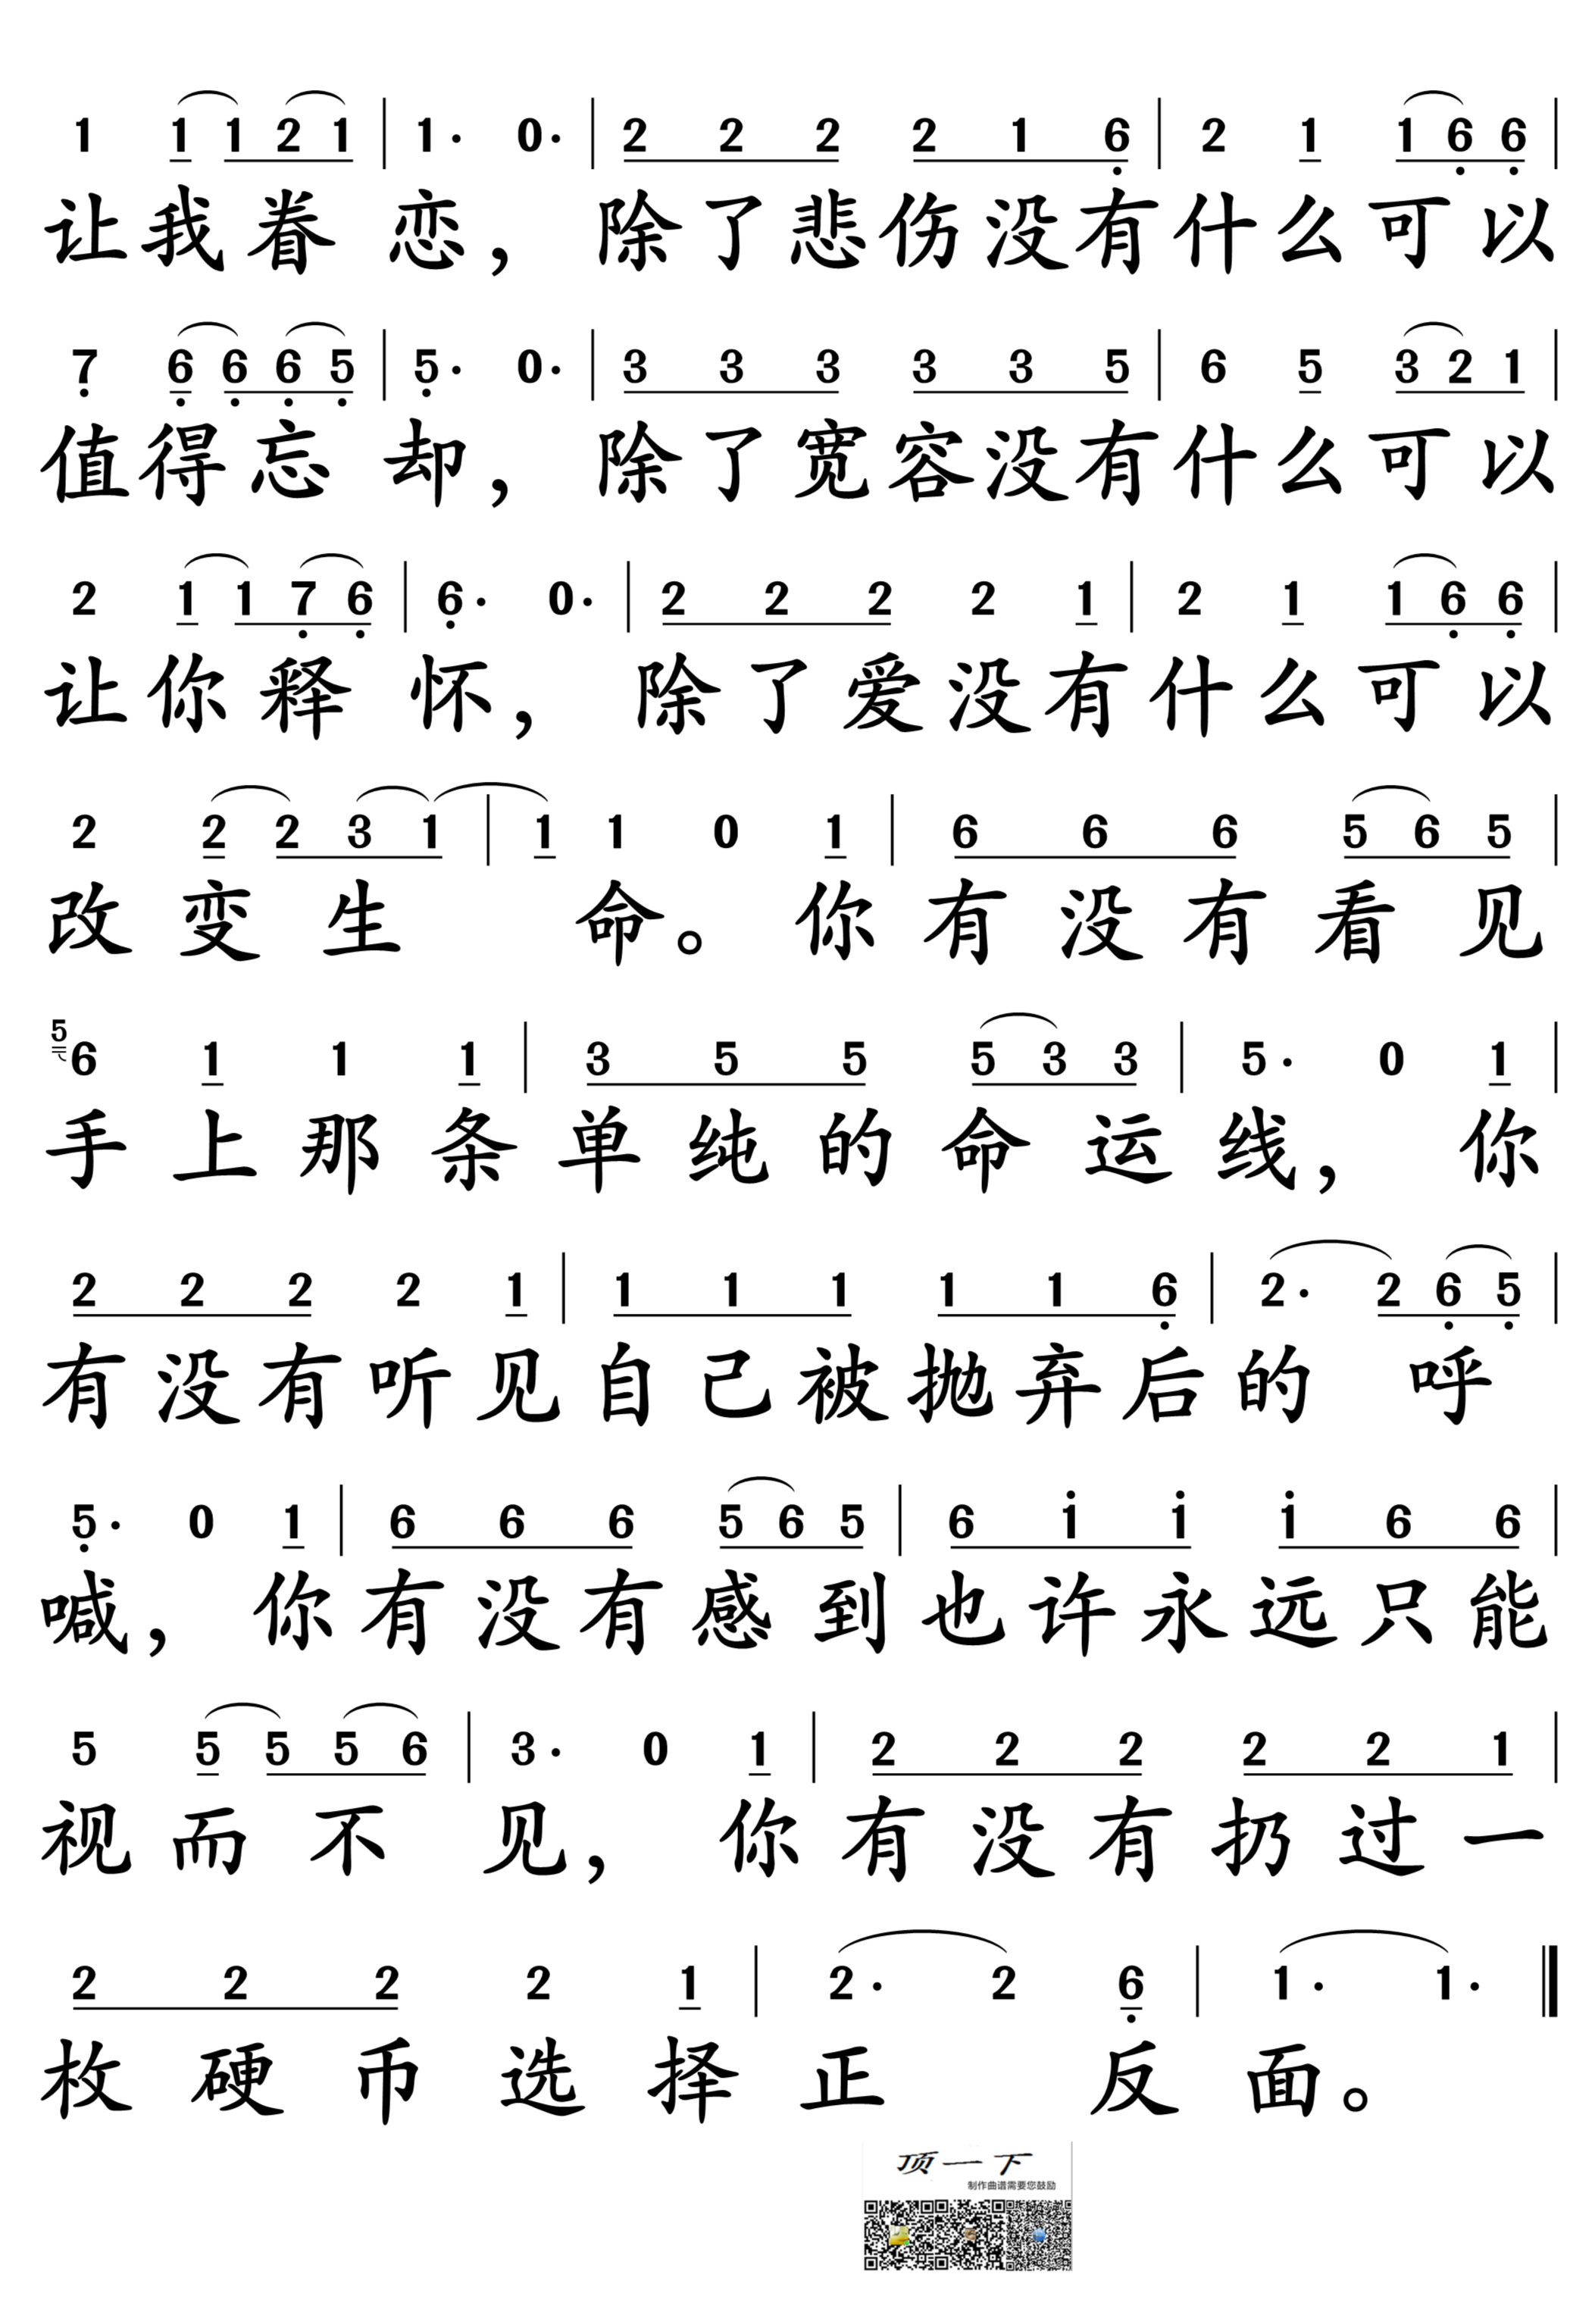 1 1 1 2 1 | 1· 0· | 2 2 2 2 1 6̣ | 2 1 1 6̣ 6̣ |
让我眷恋，除了悲伤没有什么可以
7̣ 6̣ 6̣ 6̣ 5̣ | 5̣· 0· | 3 3 3 3 3 5 | 6 5 3 2 1 |
值得忘却，除了宽容没有什么可以
2 1 1 7̣ 6̣ | 6̣· 0· | 2 2 2 2 1 | 2 1 1 6̣ 6̣ |
让你释怀，除了爱没有什么可以
2 2 2 3 1 | 1 1 0 1 | 6 6 6 5 6 5 |
改变生命。你有没有看见
5 6 1 1 1 | 3 5 5 5 3 3 | 5· 0 1 |
手上那条单纯的命运线，你
2 2 2 2 1 | 1 1 1 1 1 6̣ | 2· 2 6̣ 5̣ |
有没有听见自己被抛弃后的呼
5̣· 0 1 | 6 6 6 5 6 5 | 6 1̇ 1̇ 1̇ 6 6 |
喊，你有没有感到也许永远只能
5 5 5 5 6 | 3· 0 1 | 2 2 2 2 2 1 |
视而不见，你有没有扔过一
2 2 2 2 1 | 2· 2 6̣ | 1· 1· ‖
枚硬币选择正反面。
顶一下
制作曲谱需要您鼓励